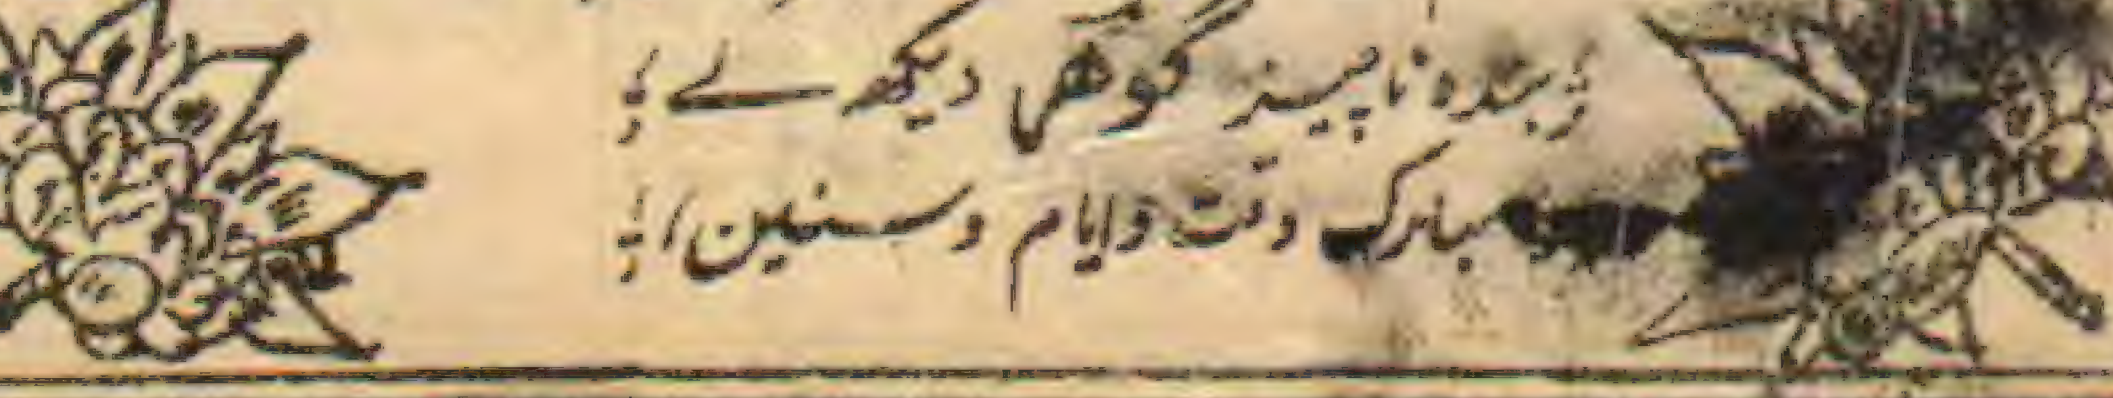 بندہ ناچیز گوہر دیکھ لے
مبارک وقت و ایام و سنین